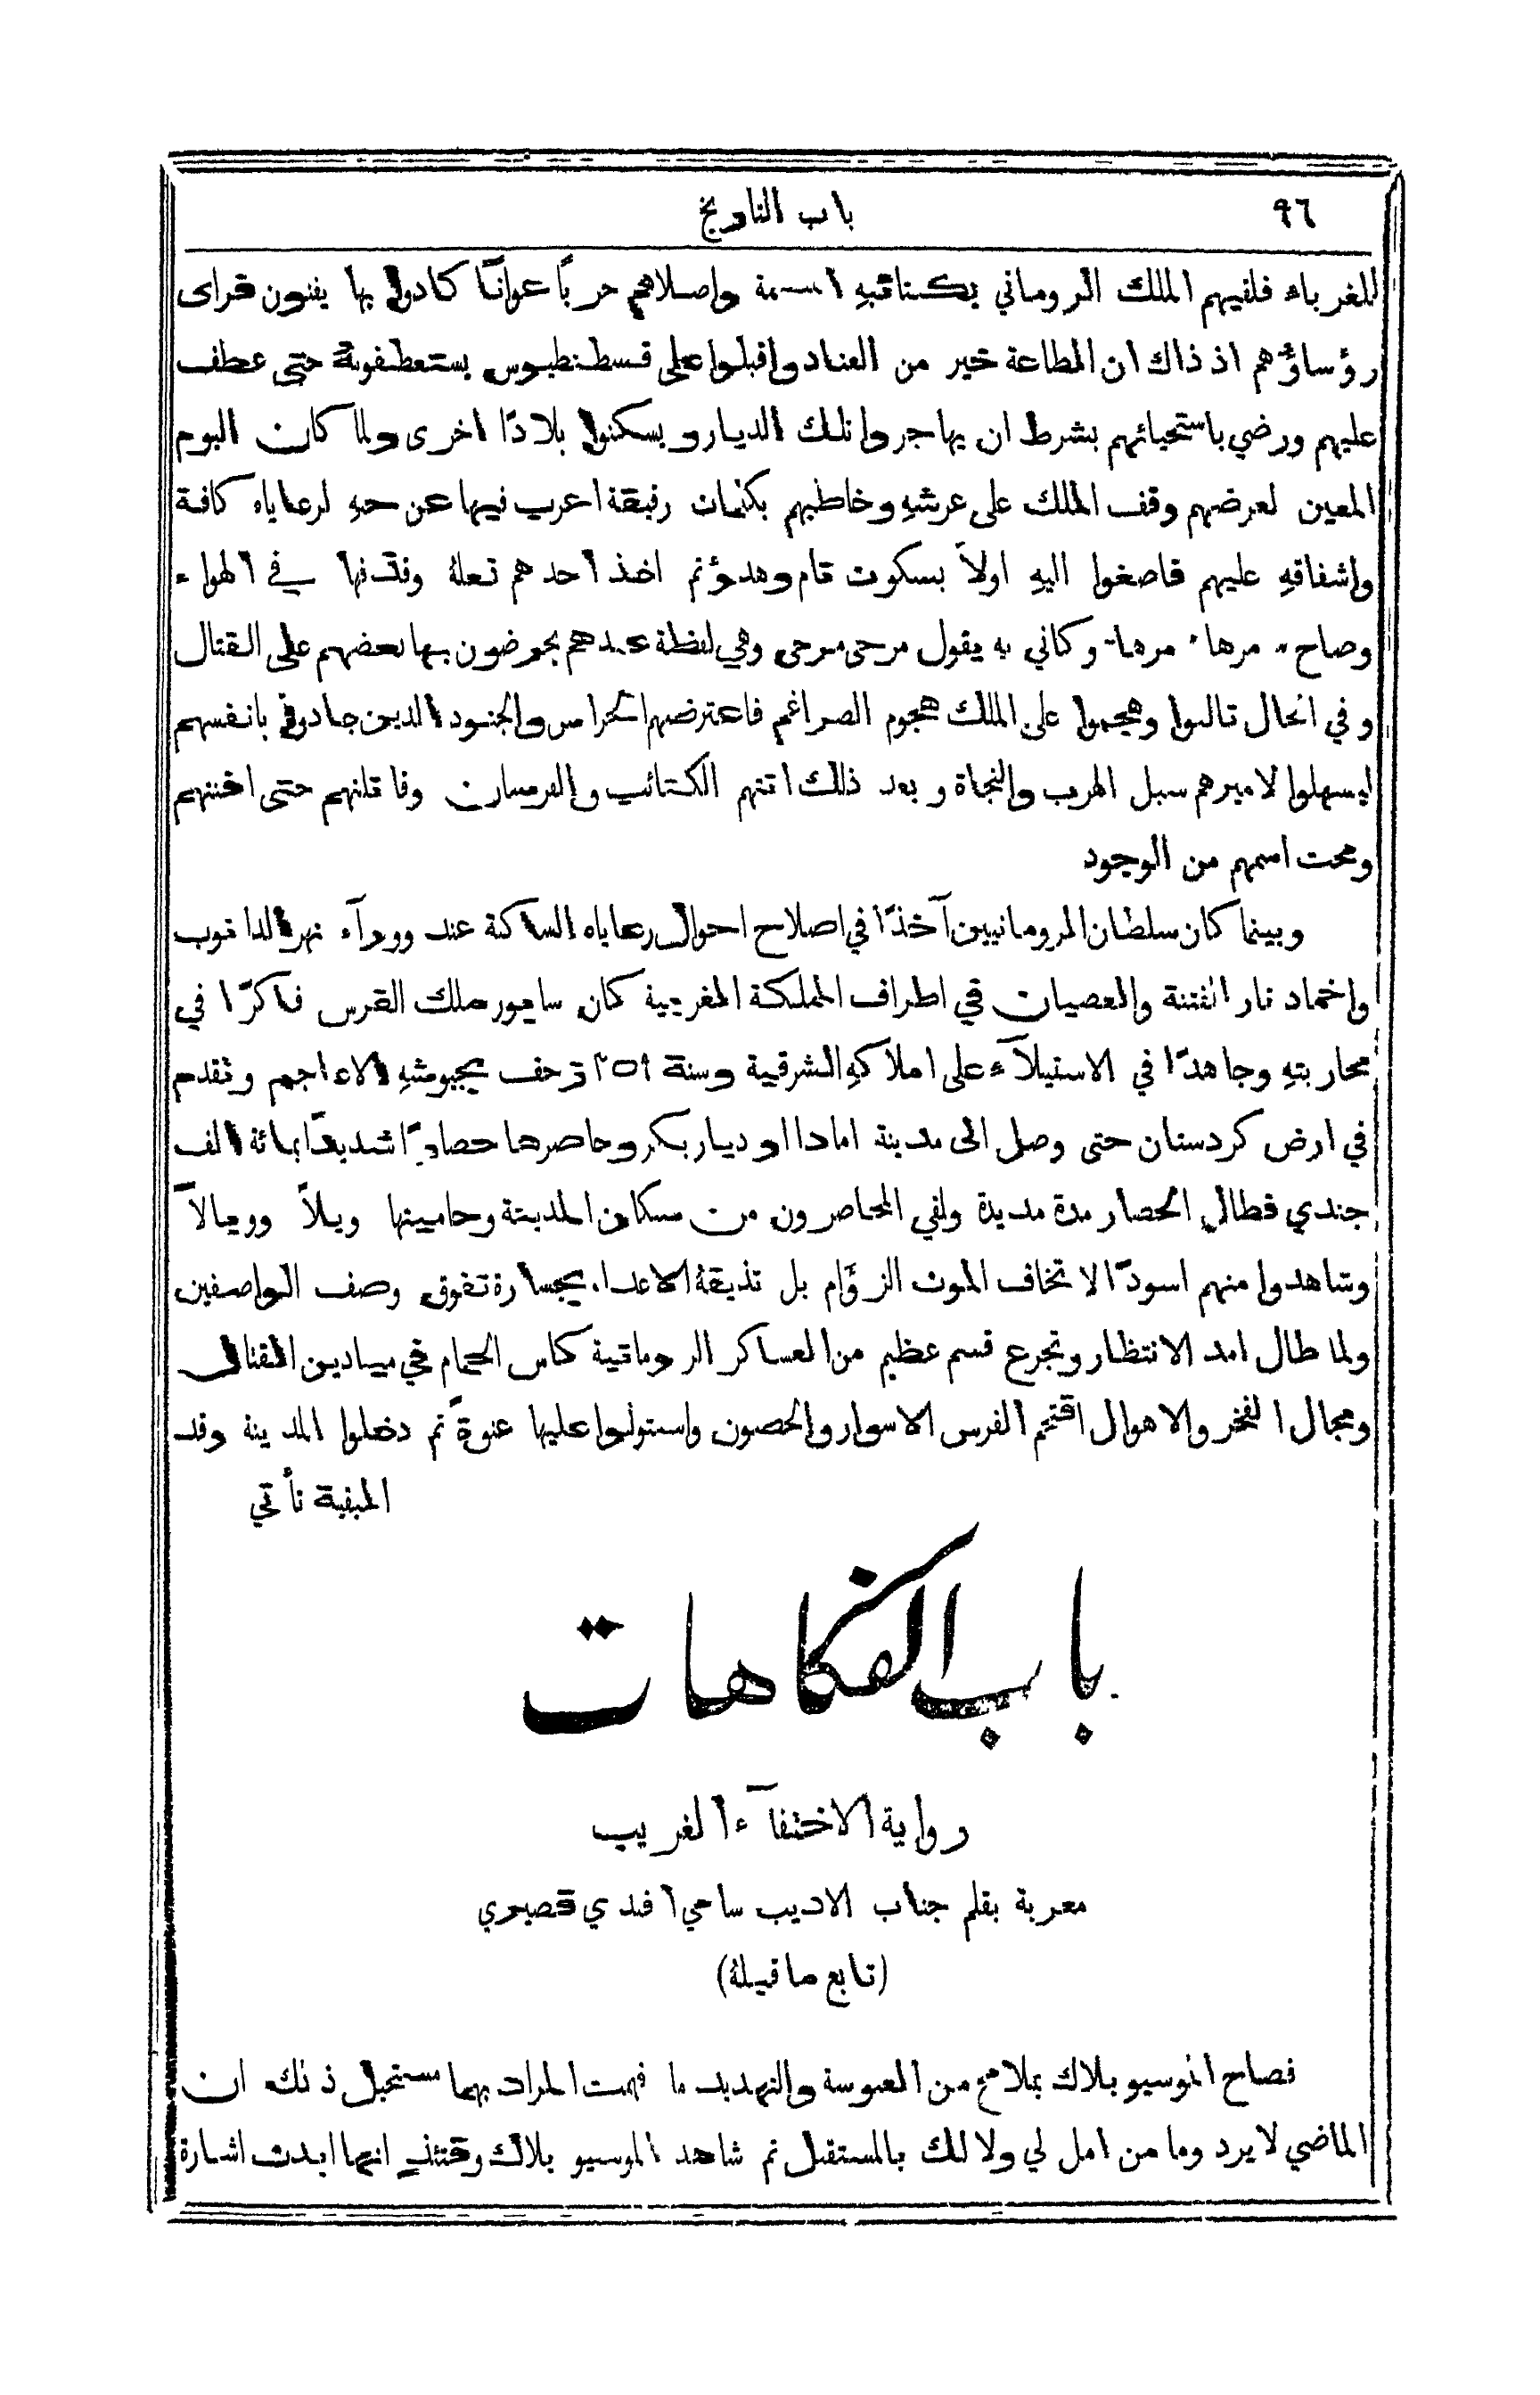 ٩٦
باب التاريخ
للغرباء فلقيهم الملك الروماني بكتائبهِ واصلاهم حربًا عوانًا كادوا بها يفنون فراى
رؤساؤهم اذ ذاك ان الطاعة خير من العناد واقبلوا على قسطنطيوس يستعطفونهُ حتى عطف
عليهم ورضي باستحيائهم بشرط ان يهاجروا تلك الديار ويسكنوا بلادًا اخرى ولما كان اليوم
المعين لعرضهم وقف الملك على عرشهِ وخاطبهم بكلمات رقيقة اعرب فيها عن حبهِ لرعاياه كافة
واشفاقهِ عليهم فاصغوا اليهِ اولاً بسكوت تام وهدوّ ثم اخذ احدهم نعلهُ وقذفها في الهواء
وصاح " مرها مرها " وكاني به يقول مرحى مرحى وهي لفظة عندهم يحرضون بها بعضهم على القتال
وفي الحال تالبوا وهجموا على الملك هجوم الضراغم فاعترضهم الحراس والجنود الذين جادوا بانفسهم
ليسهلوا لاميرهم سبل الهرب والنجاة وبعد ذلك اتتهم الكتائب والفرسان وقاتلتهم حتى افنتهم
ومحت اسمهم من الوجود
وبينما كان سلطان الرومانيين آخذًا في اصلاح احوال رعاياه الساكنة عند وورآء نهر الدانوب
واخماد نار الفتنة والعصيان في اطراف المملكة المغربية كان سابور ملك الفرس فاكرًا في
محاربتهِ وجاهدًا في الاستيلآء على املاكهِ الشرقية وسنة ٣٥٩ زحف بجيوشهِ الاعاجم وتقدم
في ارض كردستان حتى وصل الى مدينة امادا او ديار بكر وحاصرها حصارًا شديدًا بمائة الف
جندي فطال الحصار مدة مديدة ولقي المحاصرون من سكان المدينة وحاميتها ويلاً ووبالاً
وشاهدوا منهم اسودًا لا تخاف الموت الزؤام بل تذيقهُ الاعداء بجسارة تفوق وصف الواصفين
ولما طال امد الانتظار وتجرع قسم عظيم من العساكر الرومانية كاس الحمام في ميادين القتال
ومجال الفخر والاهوال اقتحم الفرس الاسوار والحصون واستولوا عليها عنوةً ثم دخلوا المدينة وقد
البقية تأتي
باب الفكاهات
رواية الاختفآء الغريب
معربة بقلم جناب الاديب سامي افندي قصيري
(تابع ما قبلهُ)
فصاح الموسيو بلاك بملامح من العبوسة والتهديد ما فهمت المراد بهما مستحيل ذلك ان
الماضي لا يرد وما من امل لي ولا لك بالمستقبل ثم شاهد الموسيو بلاك وقتئذٍ انها ابدت اشارة